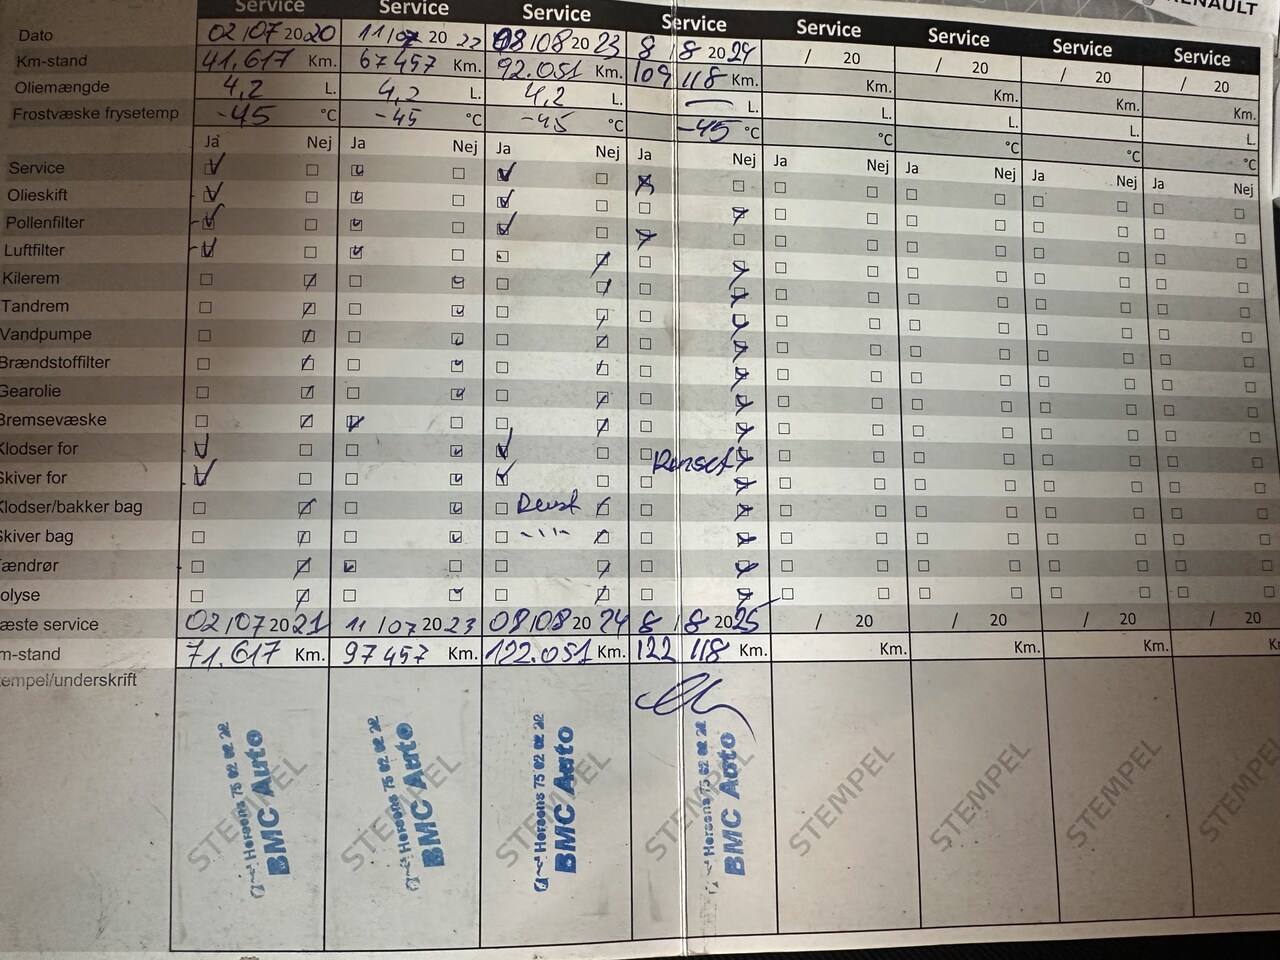 RENAULT
Service Service Service Service Service Service Service Service
Dato 02/07 2020 11/07 20 22 08/08 20 23 8/8 2024 / 20 / 20 / 20 / 20
Km-stand 41,617 Km. 67457 Km. 92.051 Km. 109 118 Km. Km. Km. Km. Km.
Oliemængde 4,2 L. 4,2 L. 4,2 L. L. L. L. L. L.
Frostvæske frysetemp -45 °C -45 °C -45 °C -45 °C °C °C °C °C
Ja Nej Ja Nej Ja Nej Ja Nej Ja Nej Ja Nej Ja Nej Ja Nej
Service
Olieskift
Pollenfilter
Luftfilter
Kilerem
Tandrem
Vandpumpe
Brændstoffilter
Gearolie
Bremsevæske
Klodser for
Skiver for Renset
Klodser/bakker bag
Skiver bag
ændrør
olyse
æste service 02/07 2021 11/07 20 23 08/08 20 24 8/8 2025 / 20 / 20 / 20 / 20
m-stand 71.617 Km. 97457 Km. 122.051 Km. 122 118 Km. Km. Km. Km. Km.
empel/underskrift
STEMPEL STEMPEL STEMPEL STEMPEL STEMPEL STEMPEL STEMPEL STEMPEL
BMC Auto
Horsens 75 62 02 22
BMC Auto
Horsens 75 62 02 22
BMC Auto
Horsens 75 62 02 22
BMC Auto
Horsens 75 62 02 22